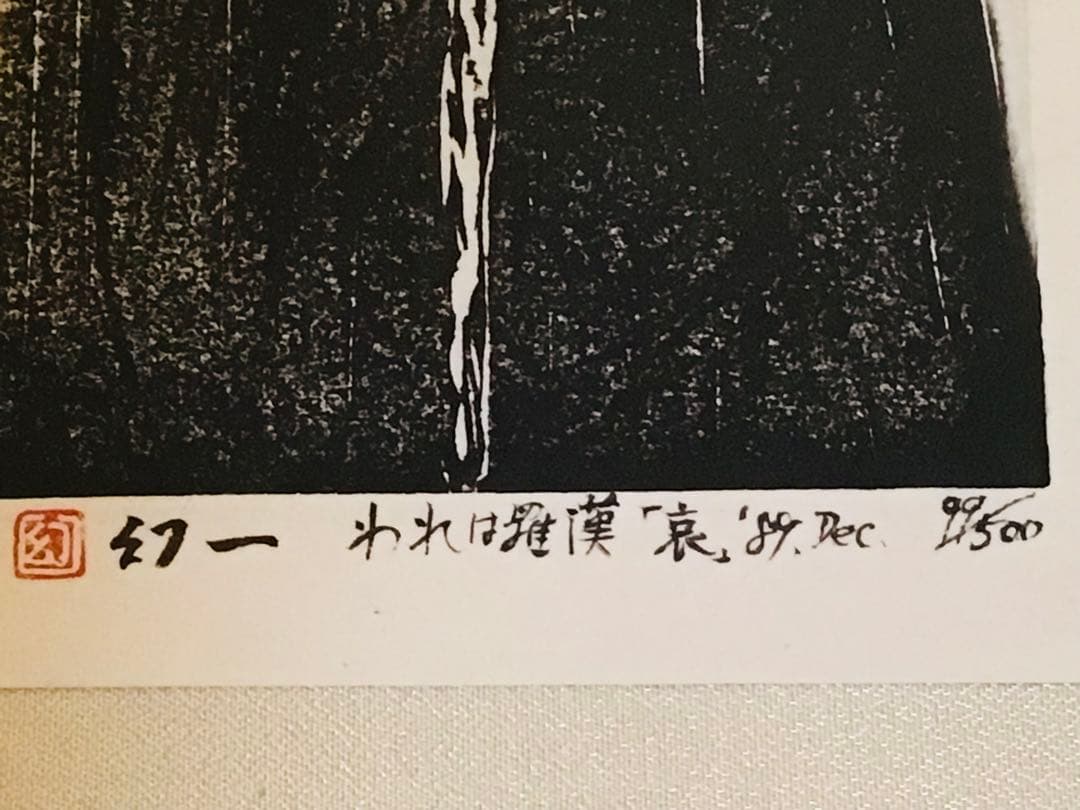 幻 幻一 われは羅漢「哀」'89. Dec. 99/500